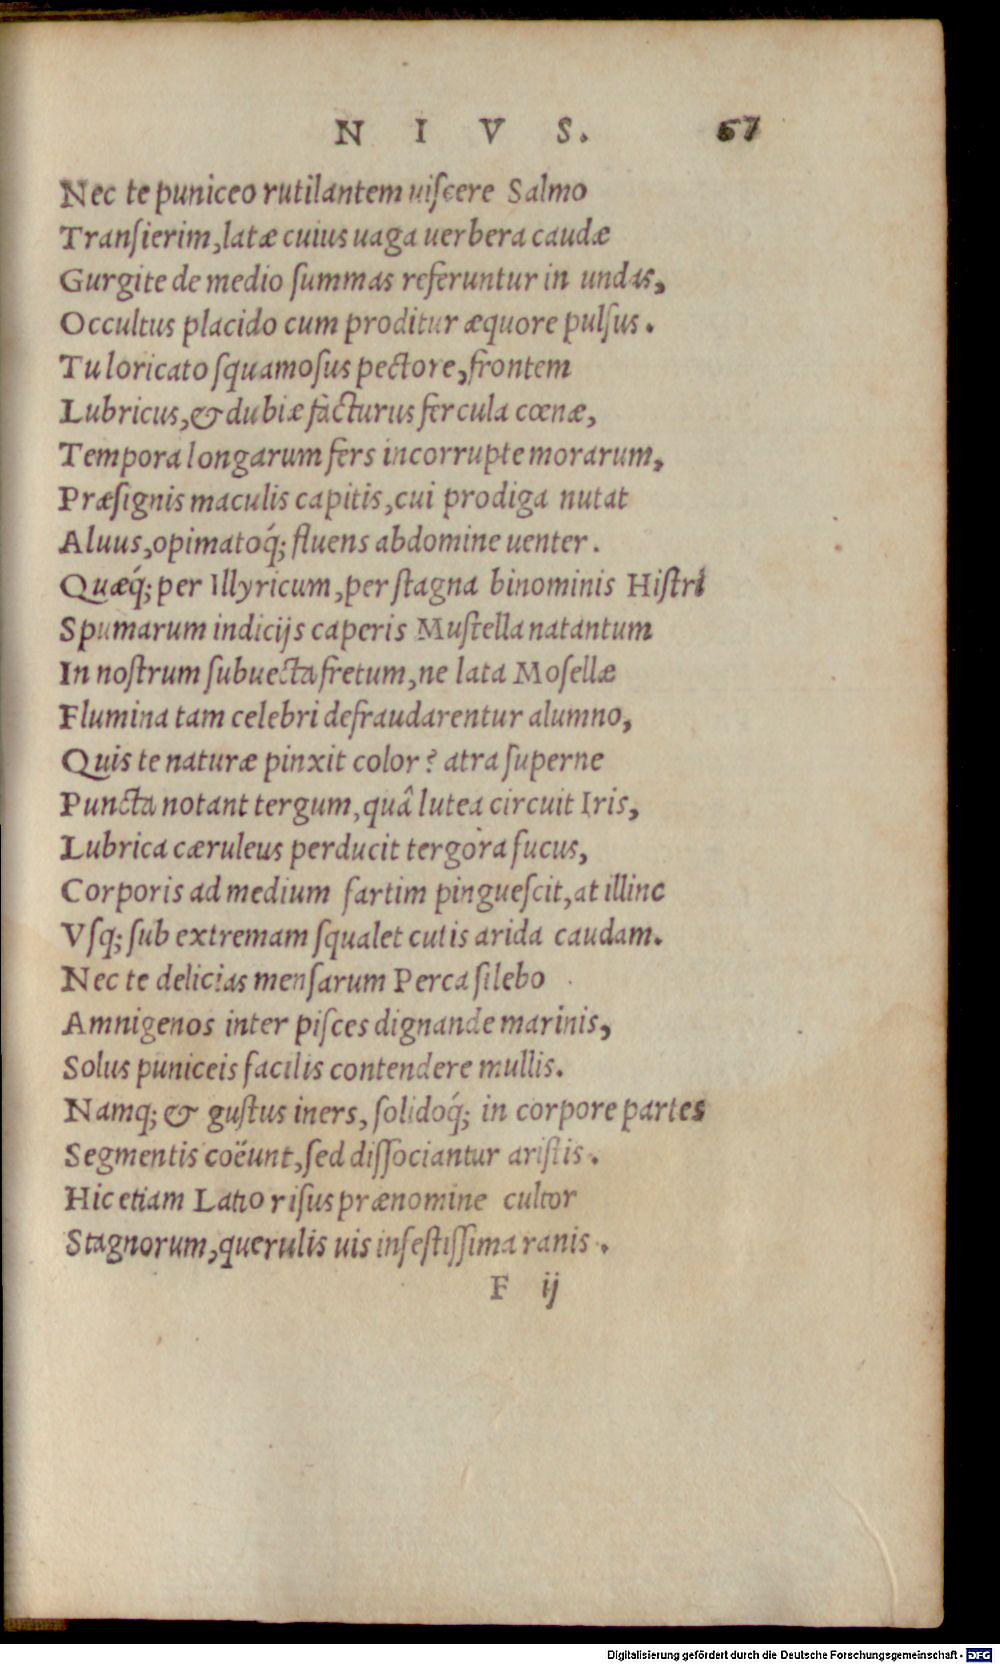 N I V S. 67
Nec te puniceo rutilantem uiſcere Salmo
Tranſierim, latæ cuius uaga uerbera caudæ
Gurgite de medio ſummas referuntur in undas,
Occultus placido cum proditur æquore pulſus.
Tu loricato ſquamoſus pectore, frontem
Lubricus, & dubiæ facturus fercula cœnæ,
Tempora longarum fers incorrupte morarum,
Præſignis maculis capitis, cui prodiga nutat
Aluus, opimatoq́; fluens abdomine uenter.
Quæq́; per Illyricum, per ſtagna binominis Hiſtri
Spumarum indicijs caperis Muſtella natantum
In noſtrum ſubuecta fretum, ne lata Moſellæ
Flumina tam celebri defraudarentur alumno,
Quis te naturæ pinxit color? atra ſuperne
Puncta notant tergum, quâ lutea circuit Iris,
Lubrica cæruleus perducit tergora fucus,
Corporis ad medium fartim pingueſcit, at illinc
Vſq; ſub extremam ſqualet cutis arida caudam.
Nec te delicias menſarum Perca ſilebo
Amnigenos inter piſces dignande marinis,
Solus puniceis facilis contendere mullis.
Namq; & guſtus iners, ſolidoq́; in corpore partes
Segmentis coëunt, ſed diſſociantur ariſtis.
Hic etiam Latio riſus prænomine cultor
Stagnorum, querulis uis infeſtiſſima ranis.
F ij
Digitalisierung gefördert durch die Deutsche Forschungsgemeinschaft - DFG